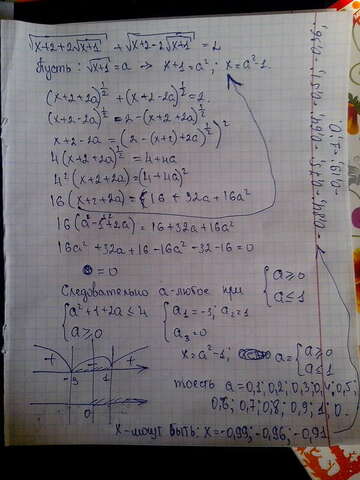 √(x+2+2√(x+1)) + √(x+2-2√(x+1)) = 2
Пусть: √(x+1) = a → x+1 = a²; x = a²-1.
(x+2+2a)^½ + (x+2-2a)^½ = 2.
(x+2-2a)^½ = 2-(x+2+2a)^½
x+2-2a = (2-(x+2+2a)^½)²
4(x+2+2a)^½ = 4+4a
4²(x+2+2a) = (4+4a)²
16(x+2+2a) = 16+32a+16a²
16(a²-1+2+2a) = 16+32a+16a²
16a²+32a+16-16a²-32-16=0
0=0
Следовательно a-любое при { a≥0
a≤1
{ a²+1+2a≤4
a≥0
{ a₁=-3; a₂=1
a₃=0
+ - +
-3 1
0
x=a²-1; a= { a≥0
a≤1
тоесть a=0,1; 0,2; 0,3; 0,4; 0,5;
0,6; 0,7; 0,8; 0,9; 1; 0.
x-могут быть: x=-0,99; -0,96; -0,91